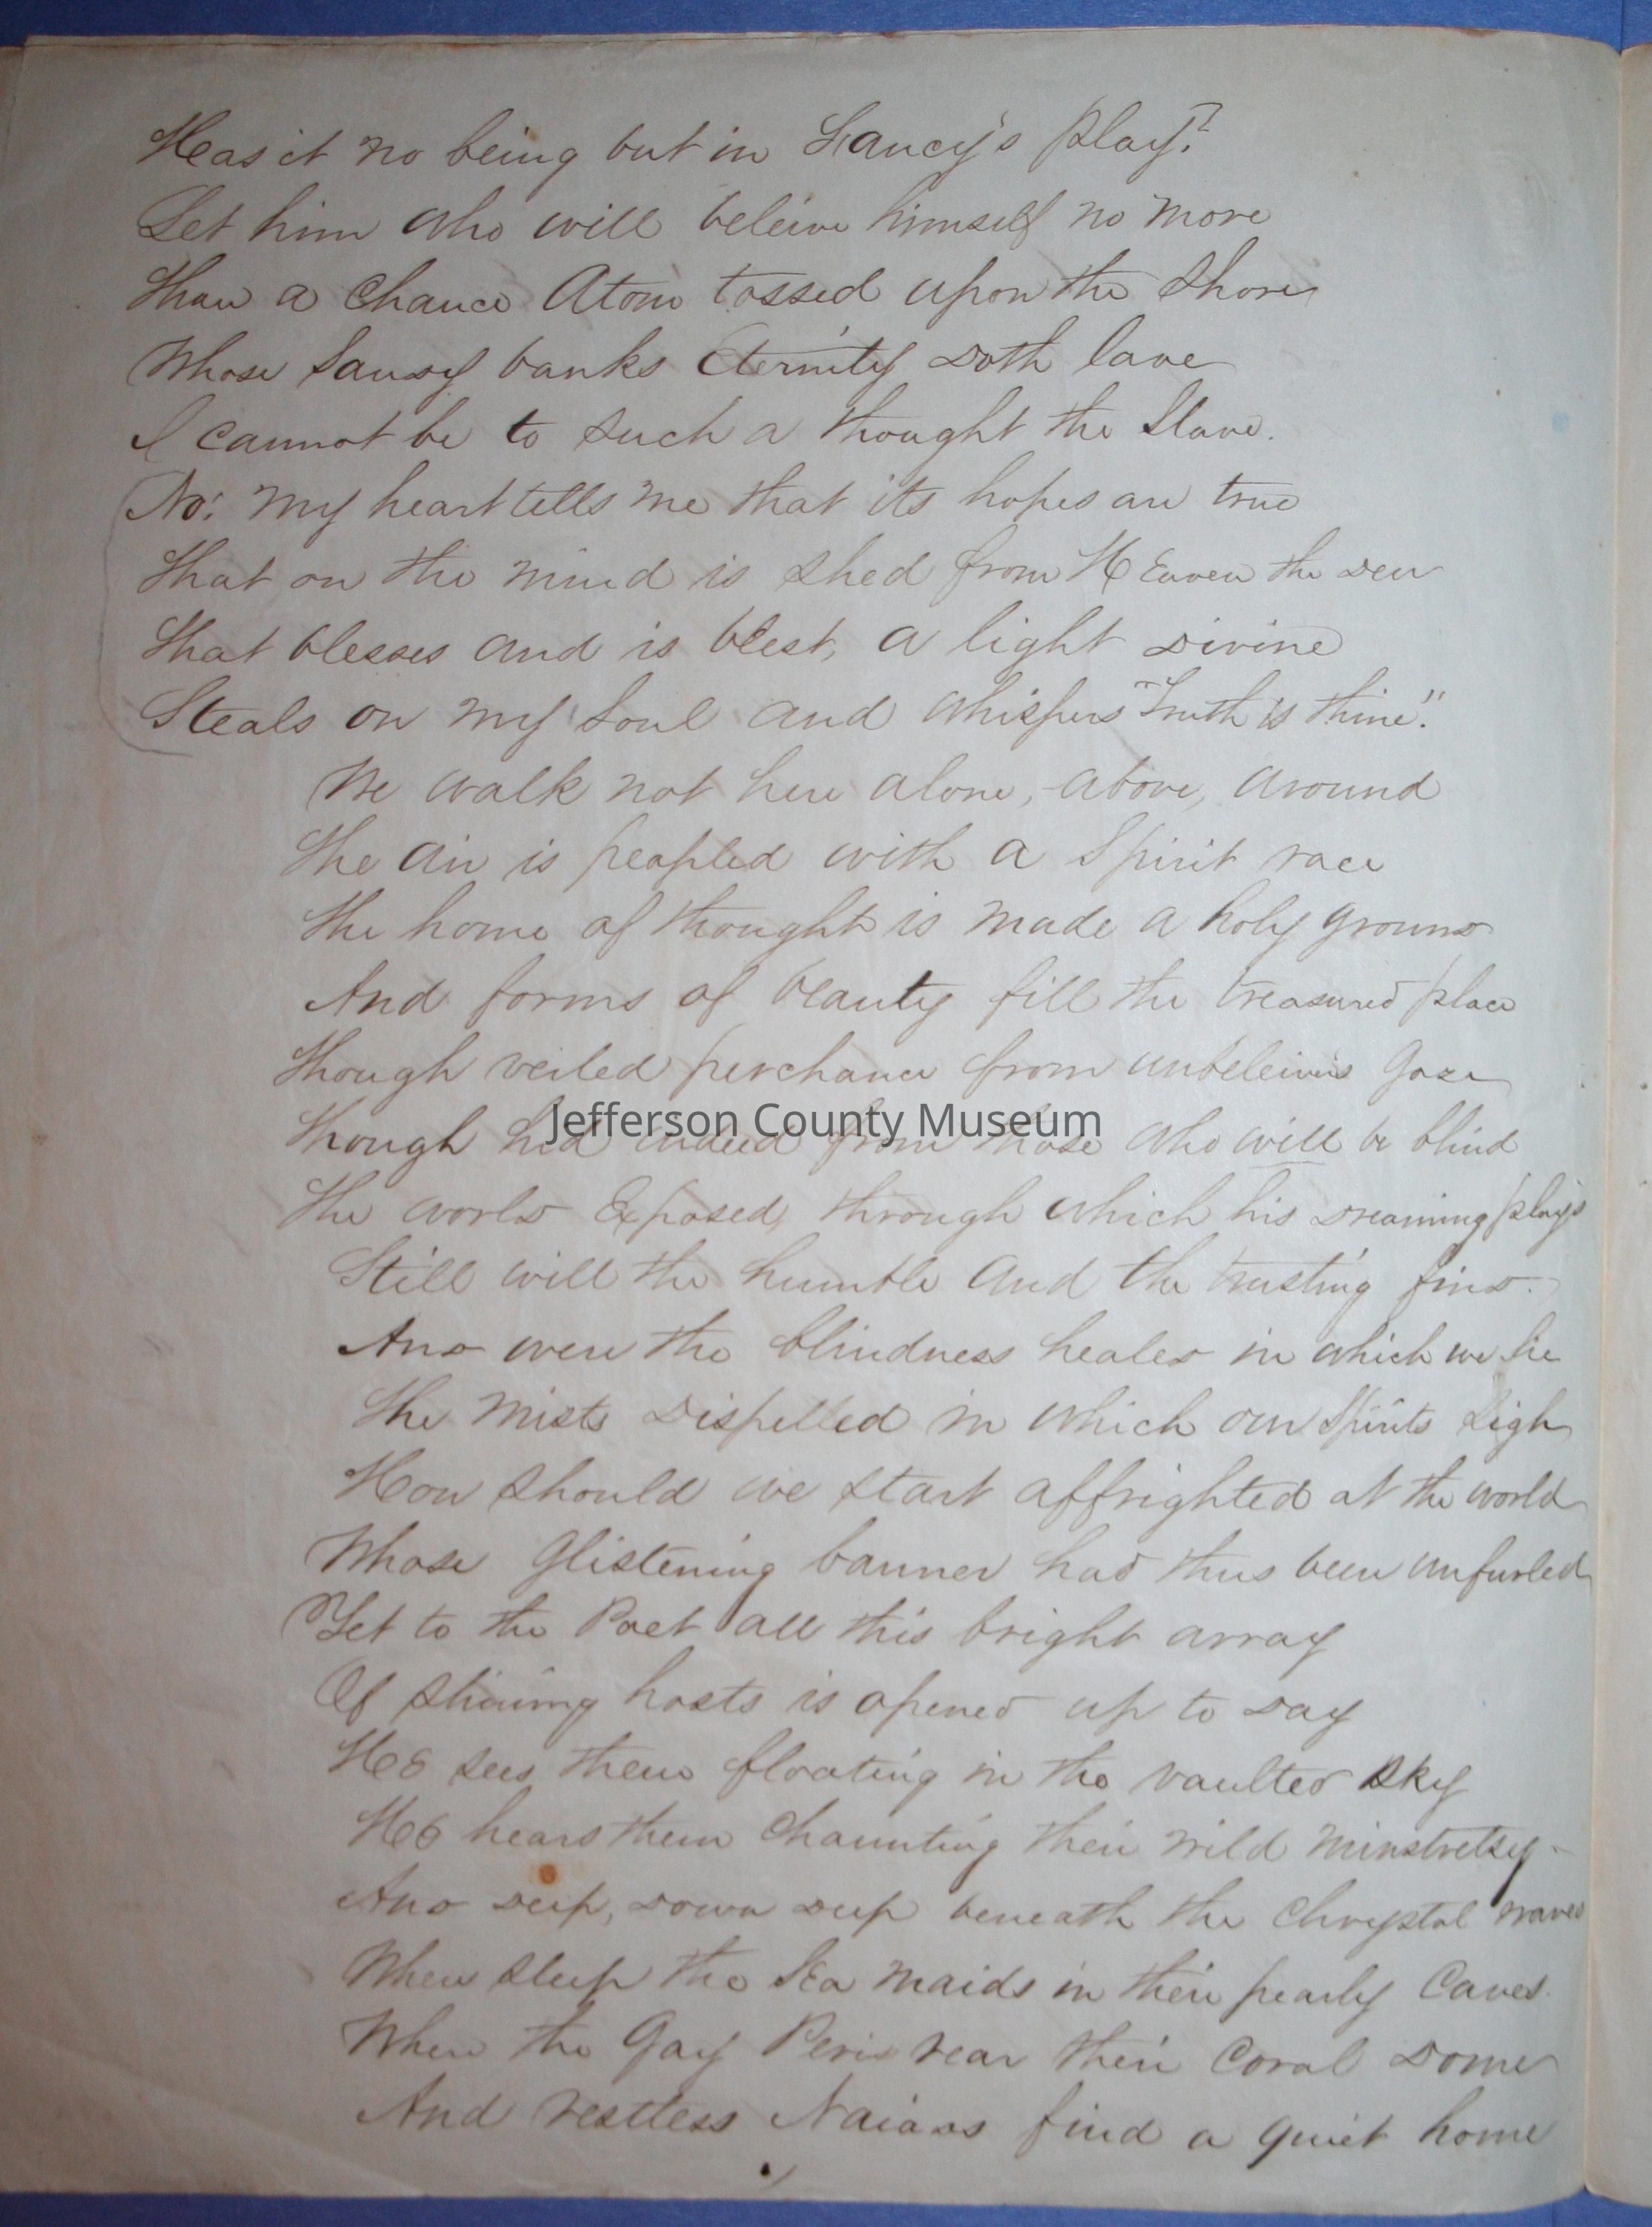 Has it no being but in Fancy's play?
Let him who will beleive himself no more
Than a Chance Atom tossed upon the Shores
Whose Sandy banks Eternity doth lave
I cannot be to such a thought the Slave.
No! My heart tells me that its hopes are true
That on the mind is shed from HEaven the dew
That blesses and is blest, a light divine
Steals on my Soul and whispers "Truth is thine".
We walk not here alone, - above, around
The air is peopled with a Spirit race
The home of thought is made a holy ground
And forms of beauty fill the treasured place
Though veiled perchance from unbeleivers gaze
Jefferson County Museum
Though hid indeed from those who will be blind
The world Exposed, through which his dreaming plays
Still will the humble and the trusting find.
And were the blindness healed in which we lie
The mists dispelled in which our Spirits sigh
How should we start affrighted at the world
Whose glistening banner had thus been unfurled
Yet to the Poet all this bright array
Of shining hosts is opened up to day
HE sees them floating in the vaulted sky
HE hears them chaunting their wild minstrelsy -
And deep, down deep beneath the Chrystal waves
Where sleep the Sea Maids in their pearly Caves.
Where the Gay Peris rear their Coral dome
And restless Naiads find a quiet home